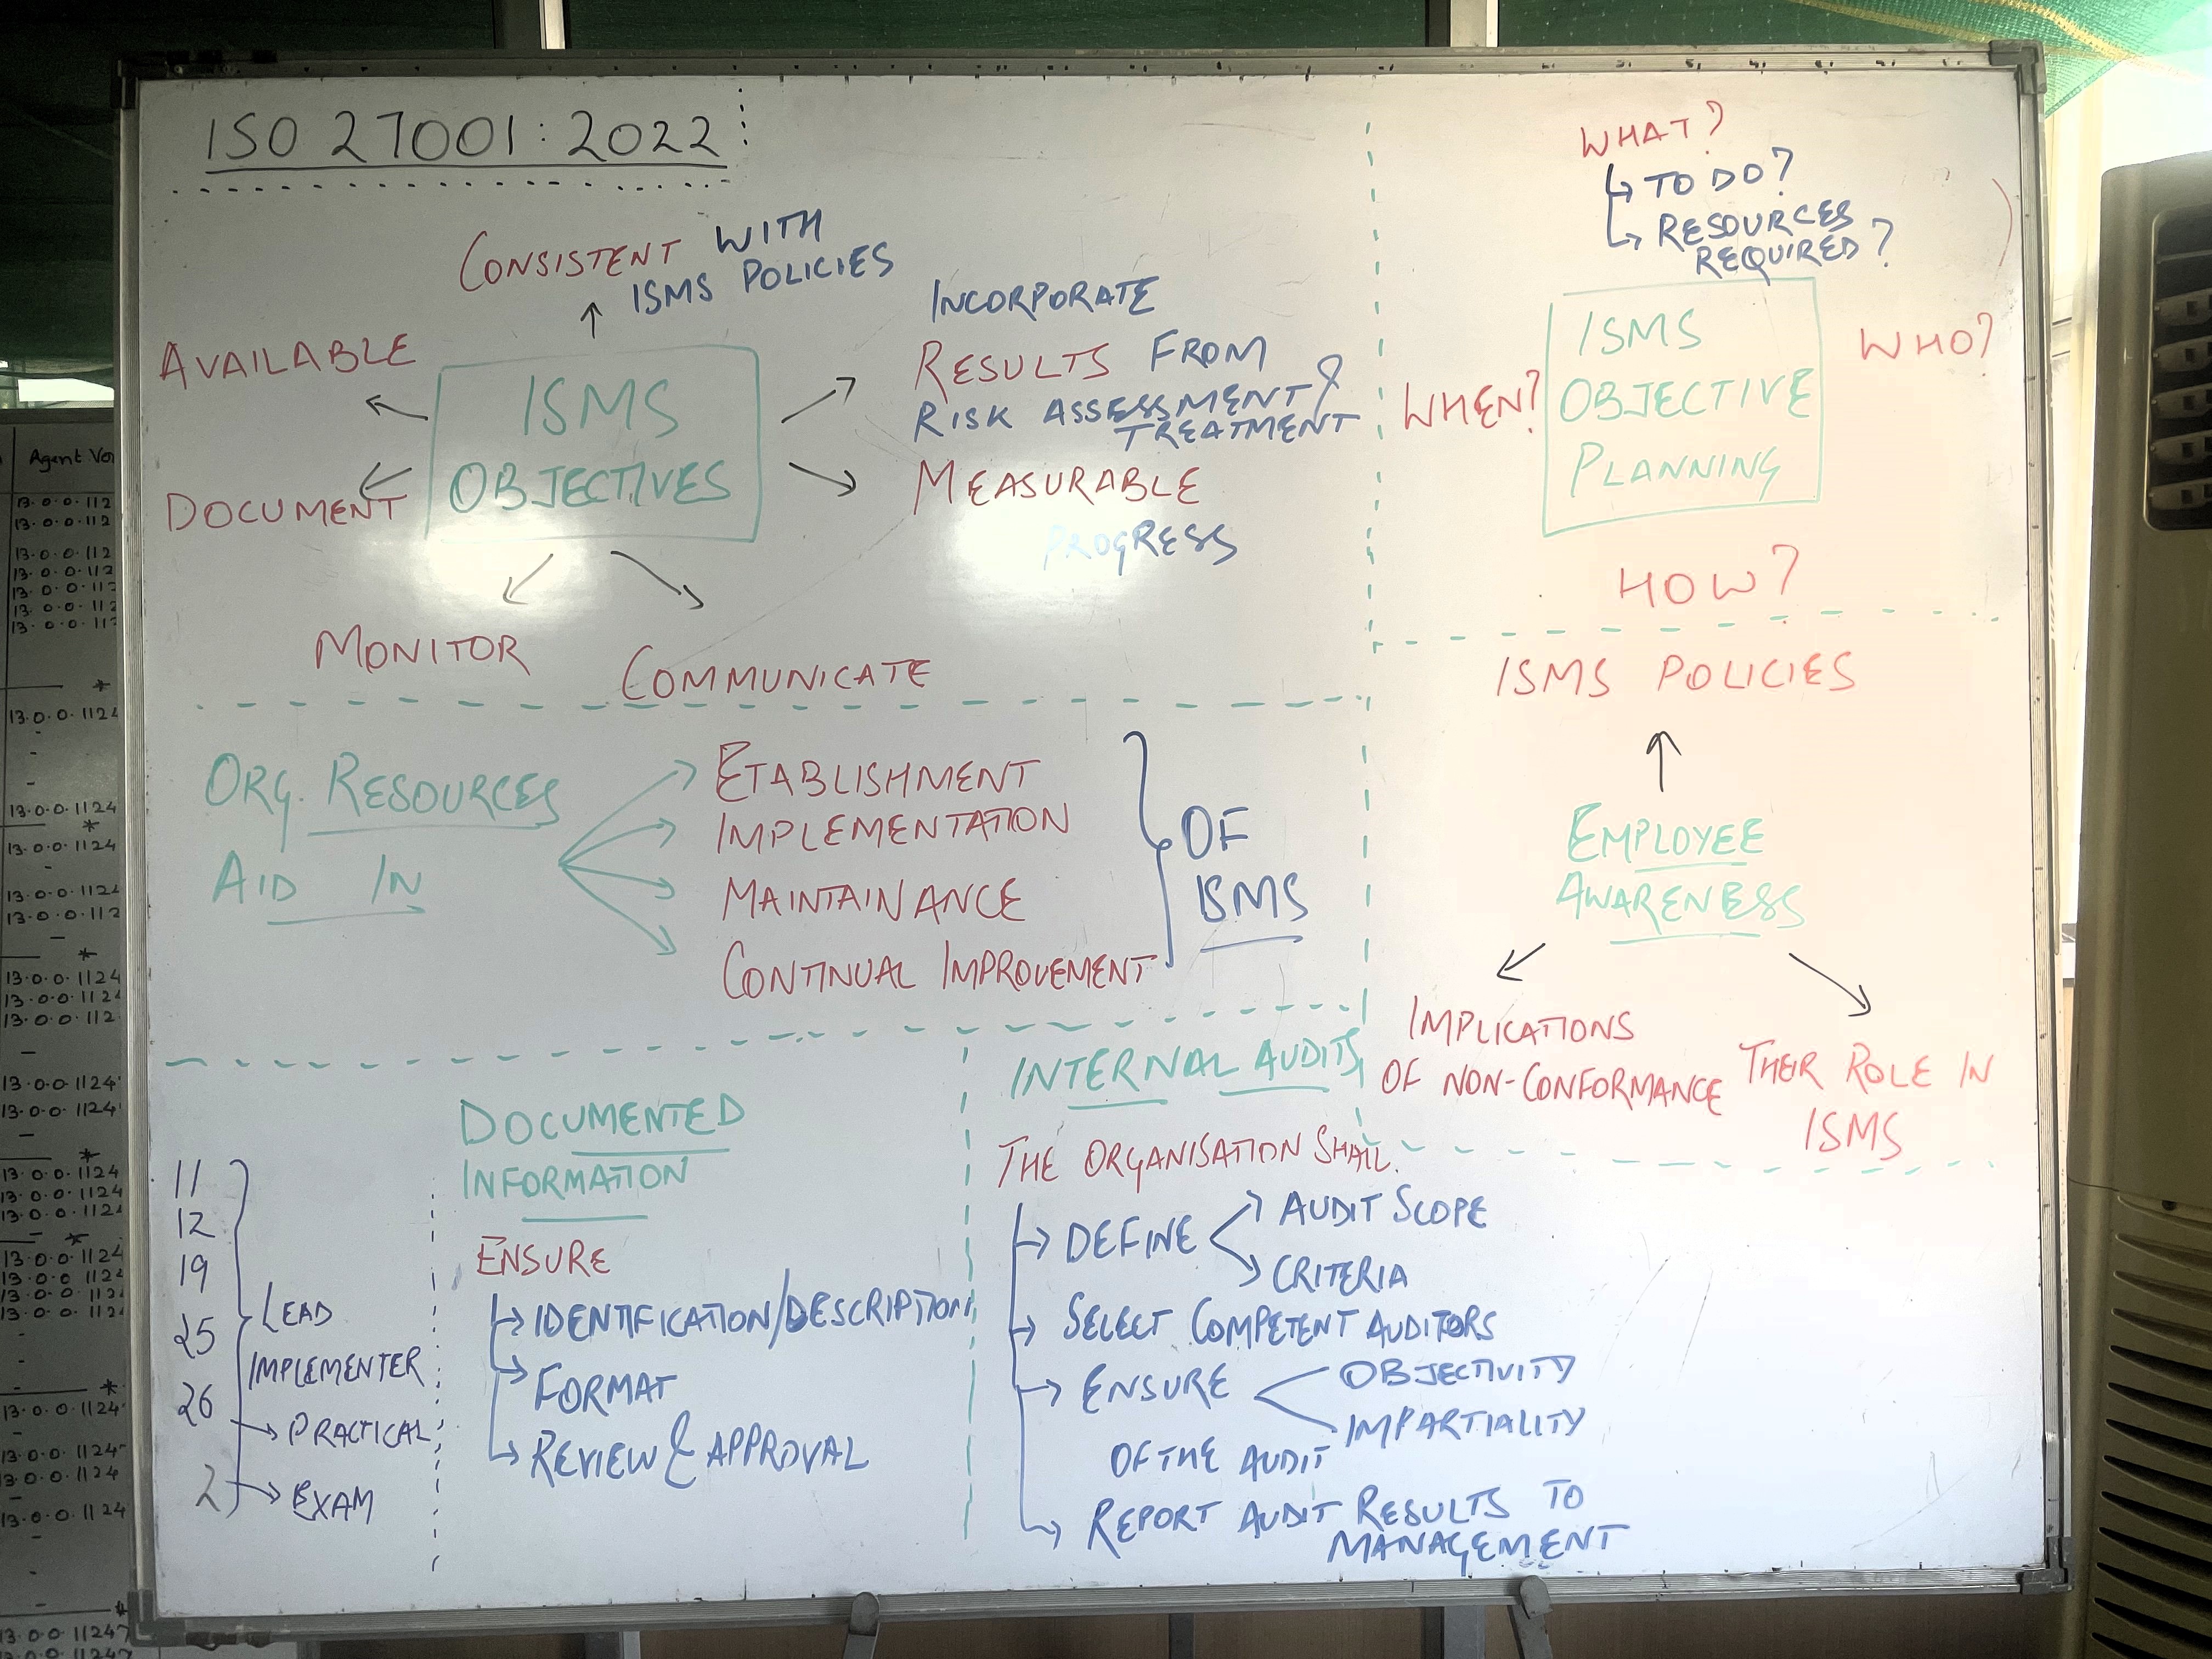 ISO 27001:2022
CONSISTENT WITH
ISMS POLICIES
AVAILABLE
DOCUMENT
ISMS
OBJECTIVES
INCORPORATE
RESULTS FROM
RISK ASSESSMENT &
TREATMENT
MEASURABLE
PROGRESS
MONITOR
COMMUNICATE
WHAT?
TO DO?
RESOURCES
REQUIRED?
WHEN?
ISMS
OBJECTIVE
PLANNING
WHO?
HOW?
ORG. RESOURCES
AID IN
ETABLISHMENT
IMPLEMENTATION
MAINTAINANCE
CONTINUAL IMPROVEMENT
OF
ISMS
ISMS POLICIES
EMPLOYEE
AWARENESS
IMPLICATIONS
OF NON-CONFORMANCE
THER ROLE IN
ISMS
11
12
19
25
26
2
LEAD
IMPLEMENTER
PRACTICAL
EXAM
DOCUMENTED
INFORMATION
ENSURE
IDENTIFICATION/DESCRIPTION
FORMAT
REVIEW & APPROVAL
INTERNAL AUDITS
THE ORGANISATION SHALL
DEFINE
AUDIT SCOPE
CRITERIA
SELECT COMPETENT AUDITORS
ENSURE
OBJECTIVITY
IMPARTIALITY
OF THE AUDIT
REPORT AUDIT RESULTS TO
MANAGEMENT
Agent Ver
13.0.0.112
13.0.0.112
13.0.0.112
13.0.0.112
13.0.0.112
13.0.0.112
13.0.0.112
13.0.0.1124
13.0.0.1124
13.0.0.1124
13.0.0.1124
13.0.0.112
13.0.0.1124
13.0.0.1124
13.0.0.112
13.0.0.1124
13.0.0.1124
13.0.0.1124
13.0.0.1124
13.0.0.1124
13.0.0.1124
13.0.0.1124
13.0.0.1124
13.0.0.1124
13.0.0.1124
13.0.0.1124
13.0.0.1124
13.0.0.1124
13.0.0.11247
13.0.0.11247